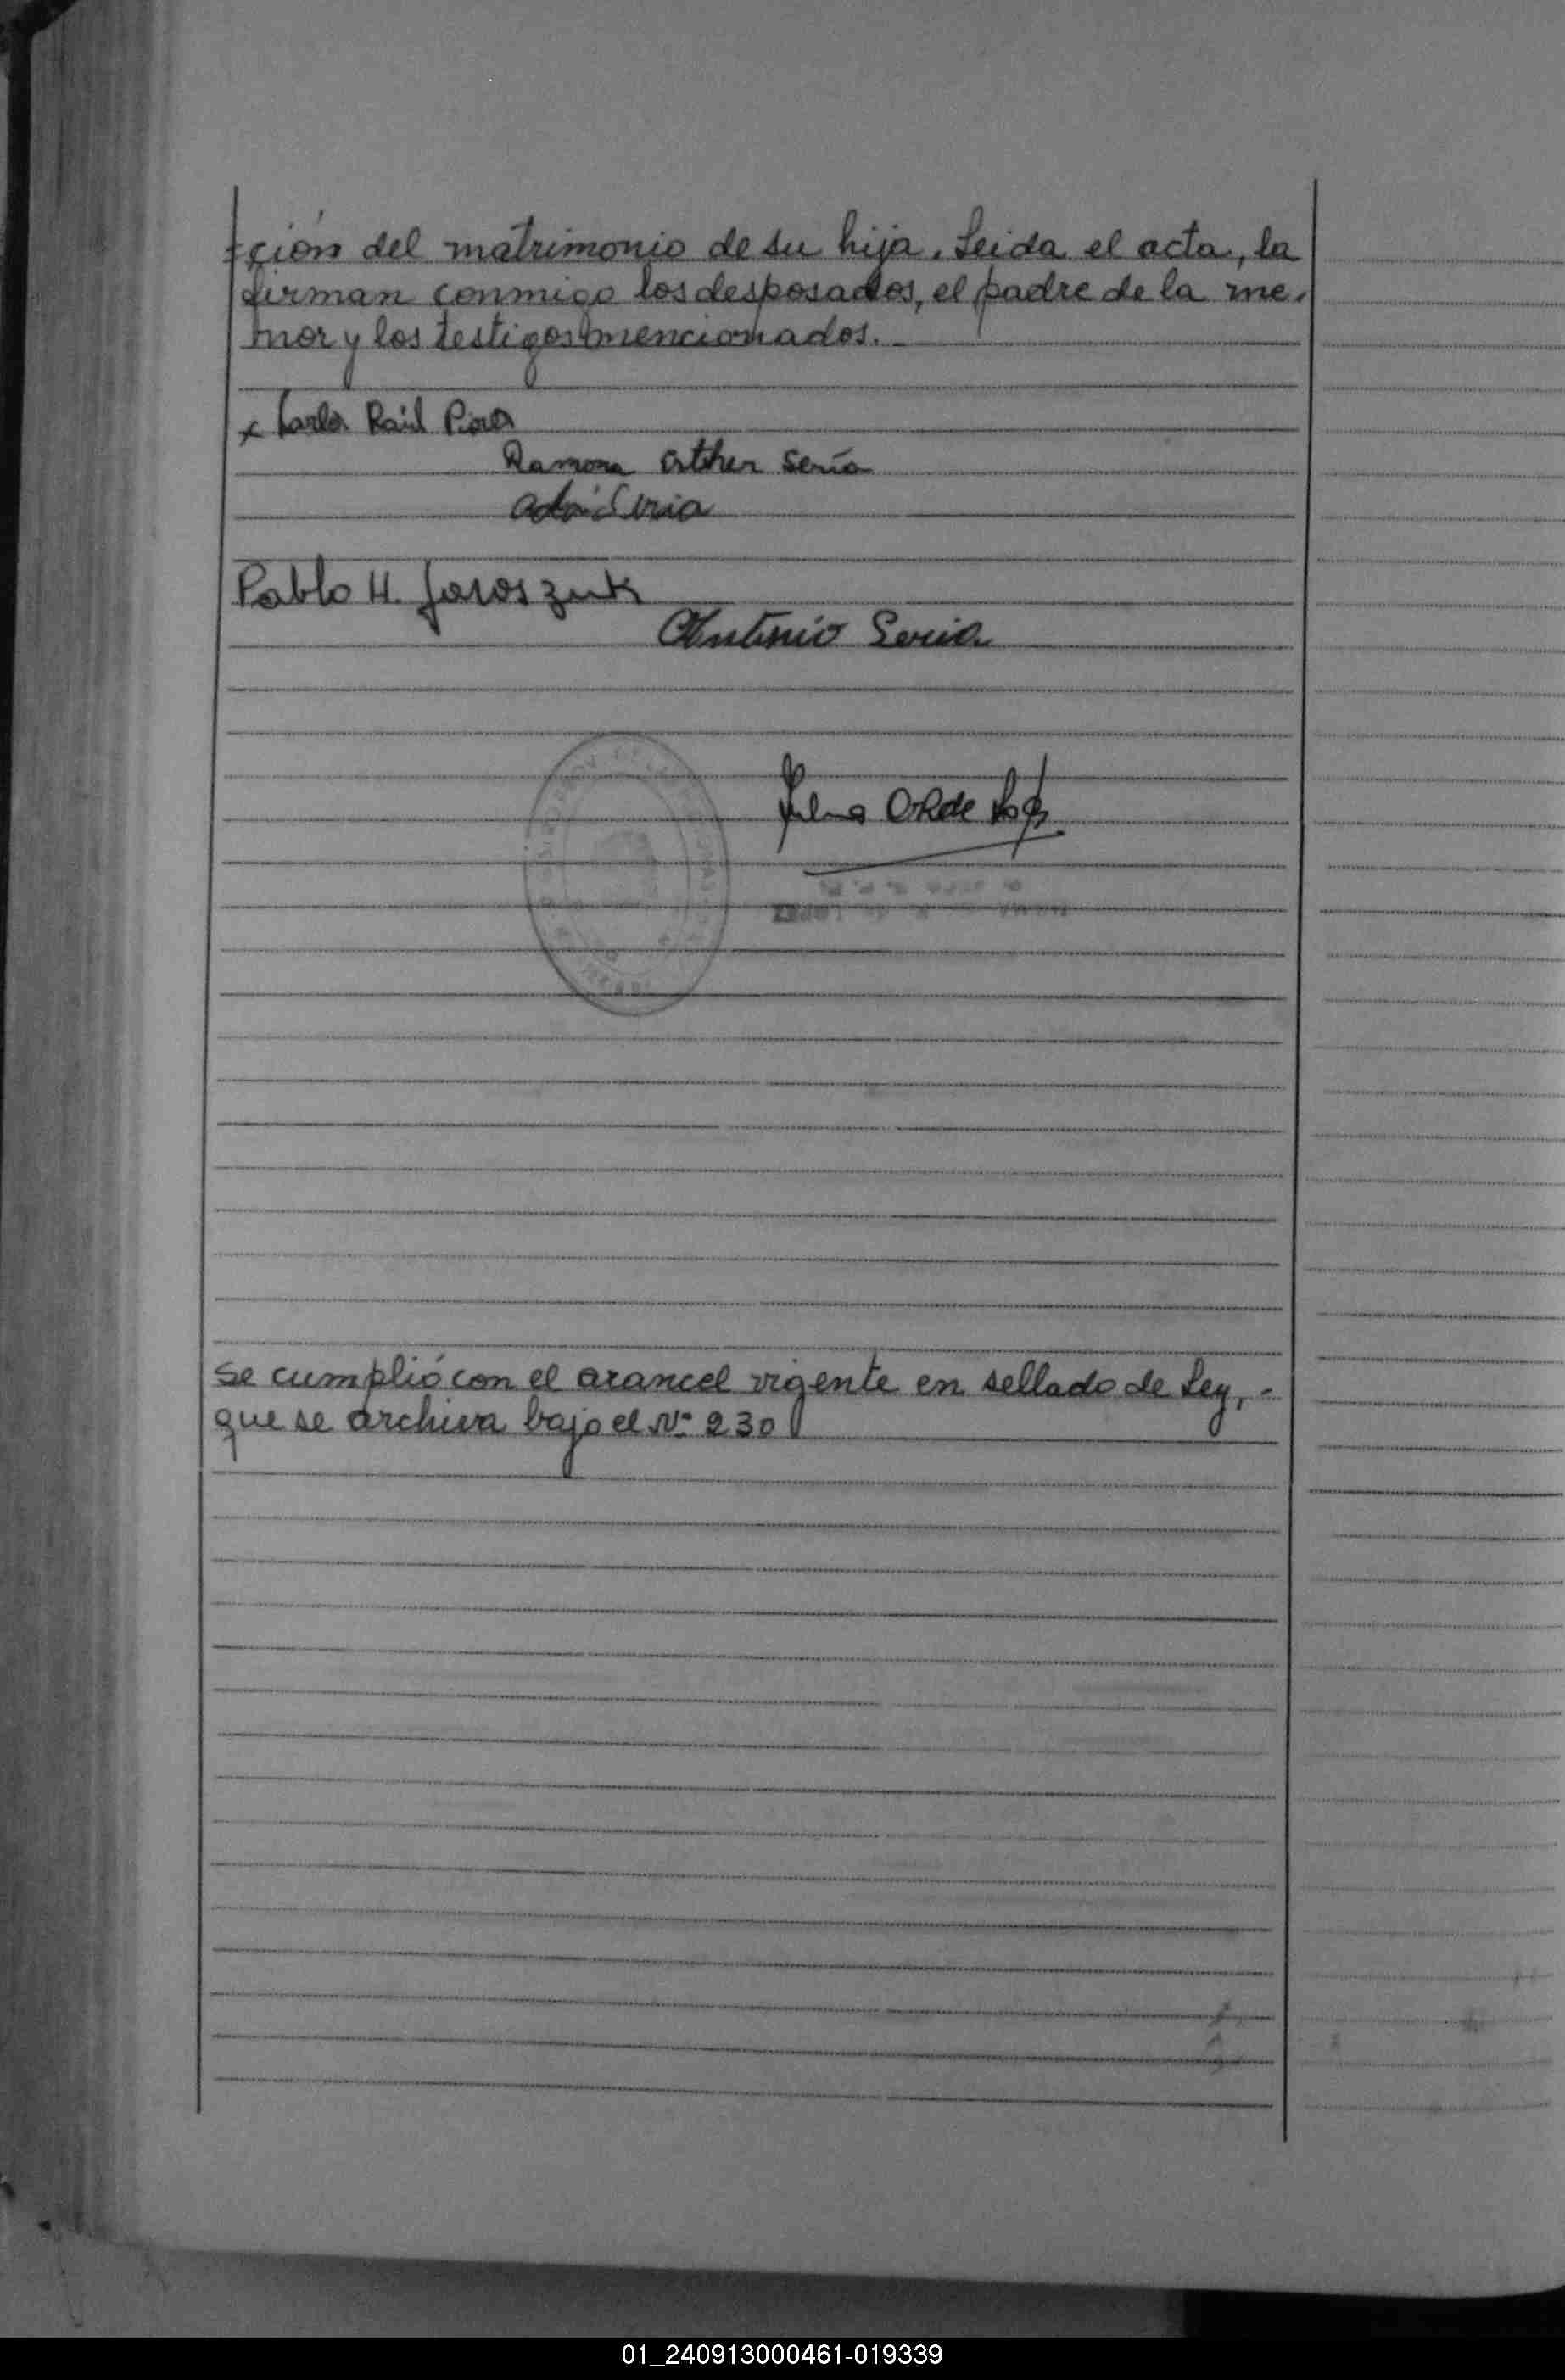 =ción del matrimonio de su hija. Leida el acta, la
firman conmigo los desposados, el padre de la me.
nor y los testigos mencionados.-
x Carlos Raúl
Ramona Esther Seria
Adán Seria
Pablo H. Jaroszuk
Antonio Seria
LOPEZ
se cumplió con el arancel vigente en sellado de Ley, -
que se archiva bajo el Nº 230
01_240913000461-019339